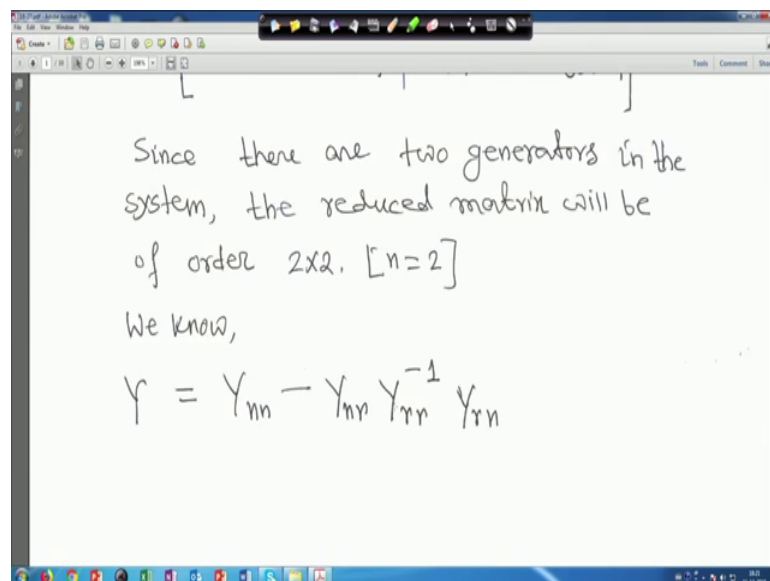 18-27.pdf - Adobe Acrobat Pro
File Edit View Window Help
Create
1
Tools Comment
Since there are two generators in the
system, the reduced matrix will be
of order 2x2. [n=2]
We know,
Y = Y_nn - Y_nr Y_rr^-1 Y_rn